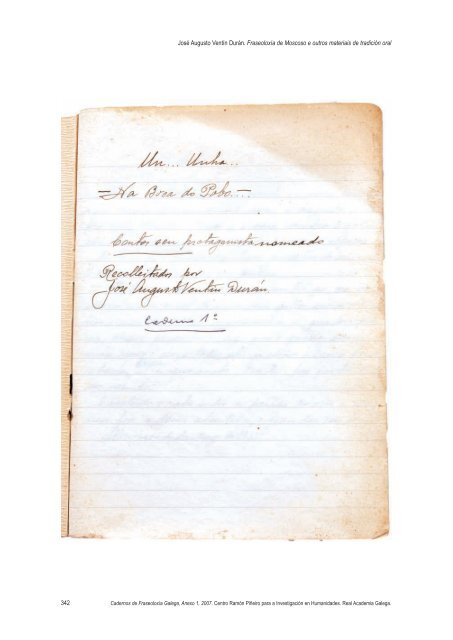 José Augusto Ventín Durán. Fraseoloxía de Moscoso e outros materiais de tradición oral
Un... Unha...
=Na Boca do Pobo...=
Contos sen protagonista nomeado
Recolleitados por
José Augusto Ventín Durán.
Caderno 1º
342 Cadernos de Fraseoloxía Galega, Anexo 1, 2007. Centro Ramón Piñeiro para a Investigación en Humanidades. Real Academia Galega.